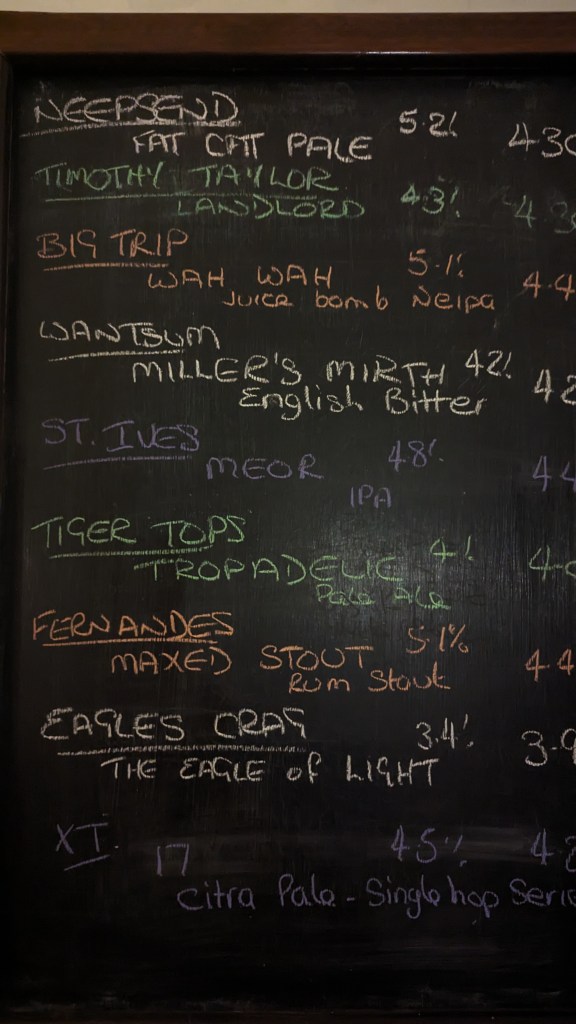 NEEPSEND 5.2% 430
FAT CAT PALE
TIMOTHY TAYLOR
LANDLORD 4.3%
BIG TRIP 5.1% 4.4
WAH WAH
Juice bomb Neipa
WANTSUM
MILLER'S MIRTH 4.2% 42
English Bitter
ST. IVES 4.8% 44
MEOR
IPA
TIGER TOPS 4%
TROPADELIC
Pale Ale
FERNANDES 5.1% 4.4
MAXED STOUT
Rum Stout
EAGLES CRAG 3.4% 3.9
THE EAGLE of LIGHT
XT. 17 4.5%
Citra Pale - Single hop Serie